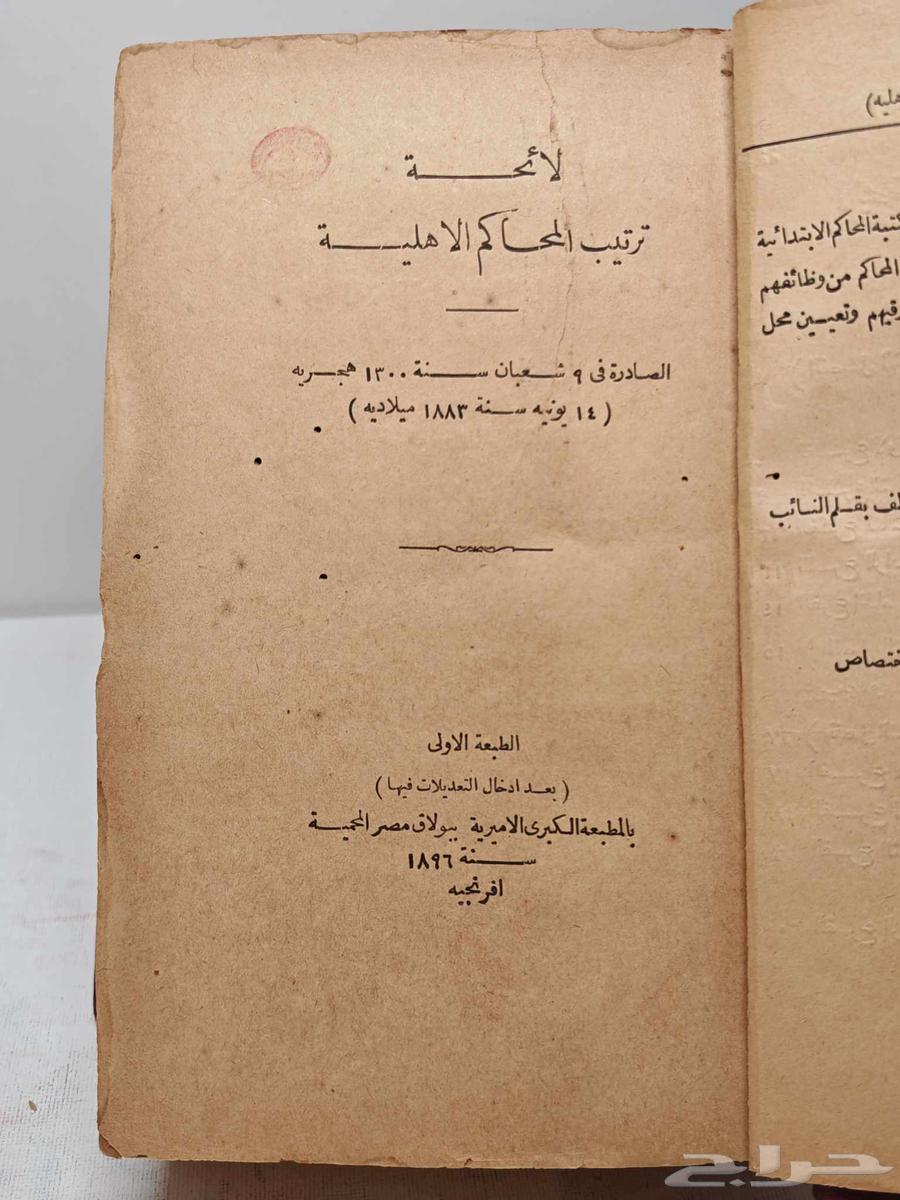 لائحة
ترتيب المحاكم الاهلية
الصادرة فى ٩ شعبان سنة ١٣٠٠ هجريه
( ١٤ يونيه سنة ١٨٨٣ ميلاديه )
الطبعة الاولى
( بعد ادخال التعديلات فيها )
بالمطبعة الكبرى الاميرية ببولاق مصر المحمية
سنة ١٨٩٦
افرنجيه
المحاكم الابتدائية
المحاكم من وظائفهم
وتعيين محل
بقلم النائب
حراج